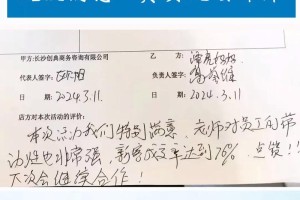 甲方:长沙创典商务咨询有限公司
乙
代表人签字:
人签字:
日期:2024.3.11
日期: 2024.3.11
店方对本次活动的评价:
本次活动我们特别满意,老师对员工的带
动性也非常强,新客成交率达到76%,点赞!!
下次会继续合作!